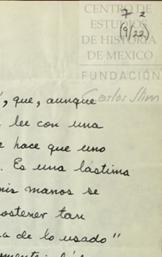 CENTRO DE
ESTUDIOS
DE HISTORIA
DE MEXICO
FUNDACIÓN
Carlos Slim
7 2
(9/22)
", que, aunque
lee con una
e hace que uno
. Es una lástima
mis manos se
ostener tan
a de lo usado"